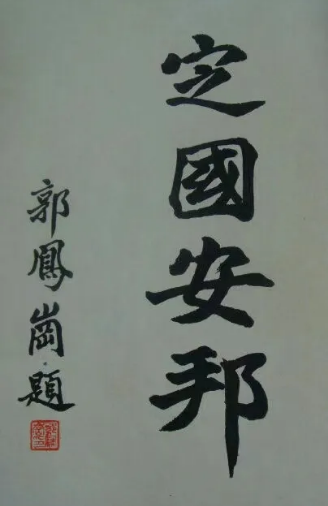 定國安邦
郭鳳崗題